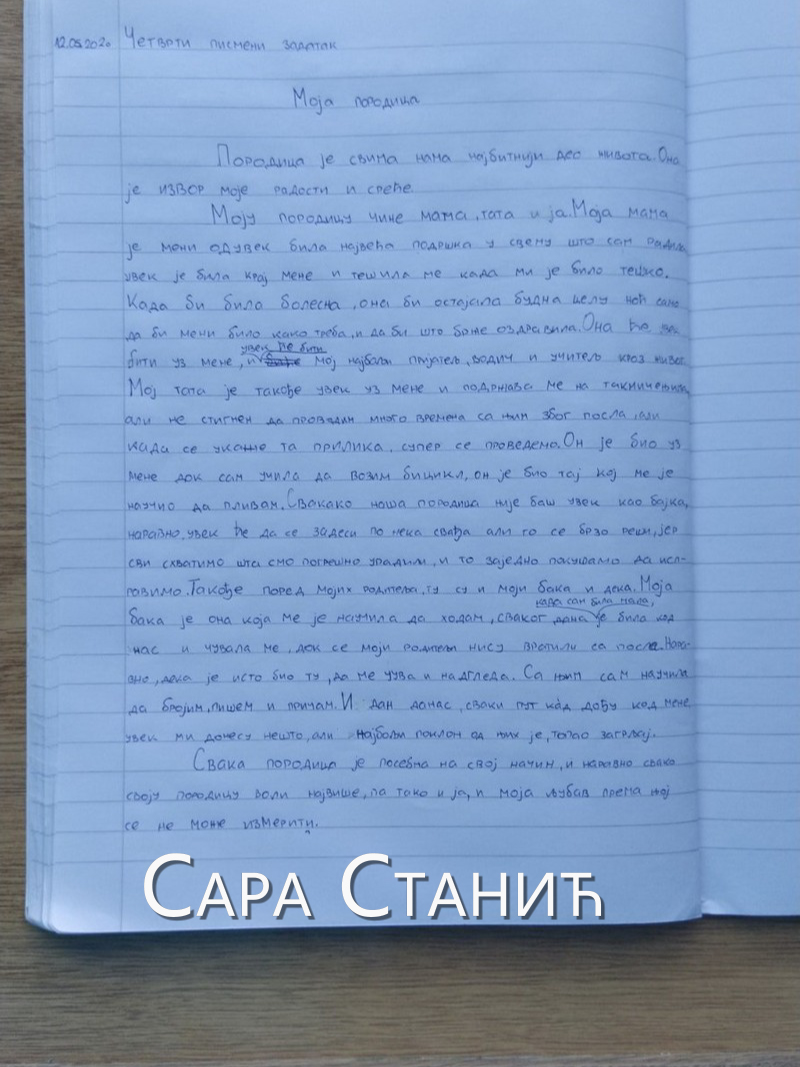 12.05.2020 Четврти писмени задатак
Моја породица
Породица је свима нама најбитнији део живота. Она
је извор моје радости и среће.
Моју породицу чине мама, тата и ја. Моја мама
је мени одувек била највећа подршка у свему што сам радила,
увек је била крај мене и тешила ме када ми је било тешко.
Када би била болесна, она би остајала будна целу ноћ само
да би мени било како треба, и да би што брже оздравила. Она ће
увек ће бити
бити уз мене, и мој најбољи пријатељ, водич и учитељ кроз живот.
Мој тата је такође увек уз мене и подржава ме на такмичењима,
али не стигнем да проводим много времена са њим због посла, али
када се укаже та прилика, супер се проведемо. Он је био уз
мене док сам учила да возим бицикл, он је био тај кој ме је
научио да пливам. Свакако наша породица није баш увек као бајка,
наравно, увек ће да се задеси по нека свађа али то се брзо реши, јер
сви схватимо шта смо погрешно урадили, и то заједно покушамо да исп-
равимо. Такође поред мојих родитеља, ту су и моји бака и дека. Моја
када сам била мала,
бака је она која ме је научила да ходам, сваког дана је била код
нас и чувала ме, док се моји родитељи нису вратили са посла. Нара-
вно, дека је исто био ту, да ме чува и надгледа. Са њим сам научила
да бројим, пишем и причам. И дан данас, сваки пут кад дођу код мене
увек ми донесу нешто, али најбољи поклон од њих је, топао загрљај.
Свака породица је посебна на свој начин, и наравно свако
своју породицу воли највише, па тако и ја, и моја љубав према њој
се не може измерити.
Сара Станић